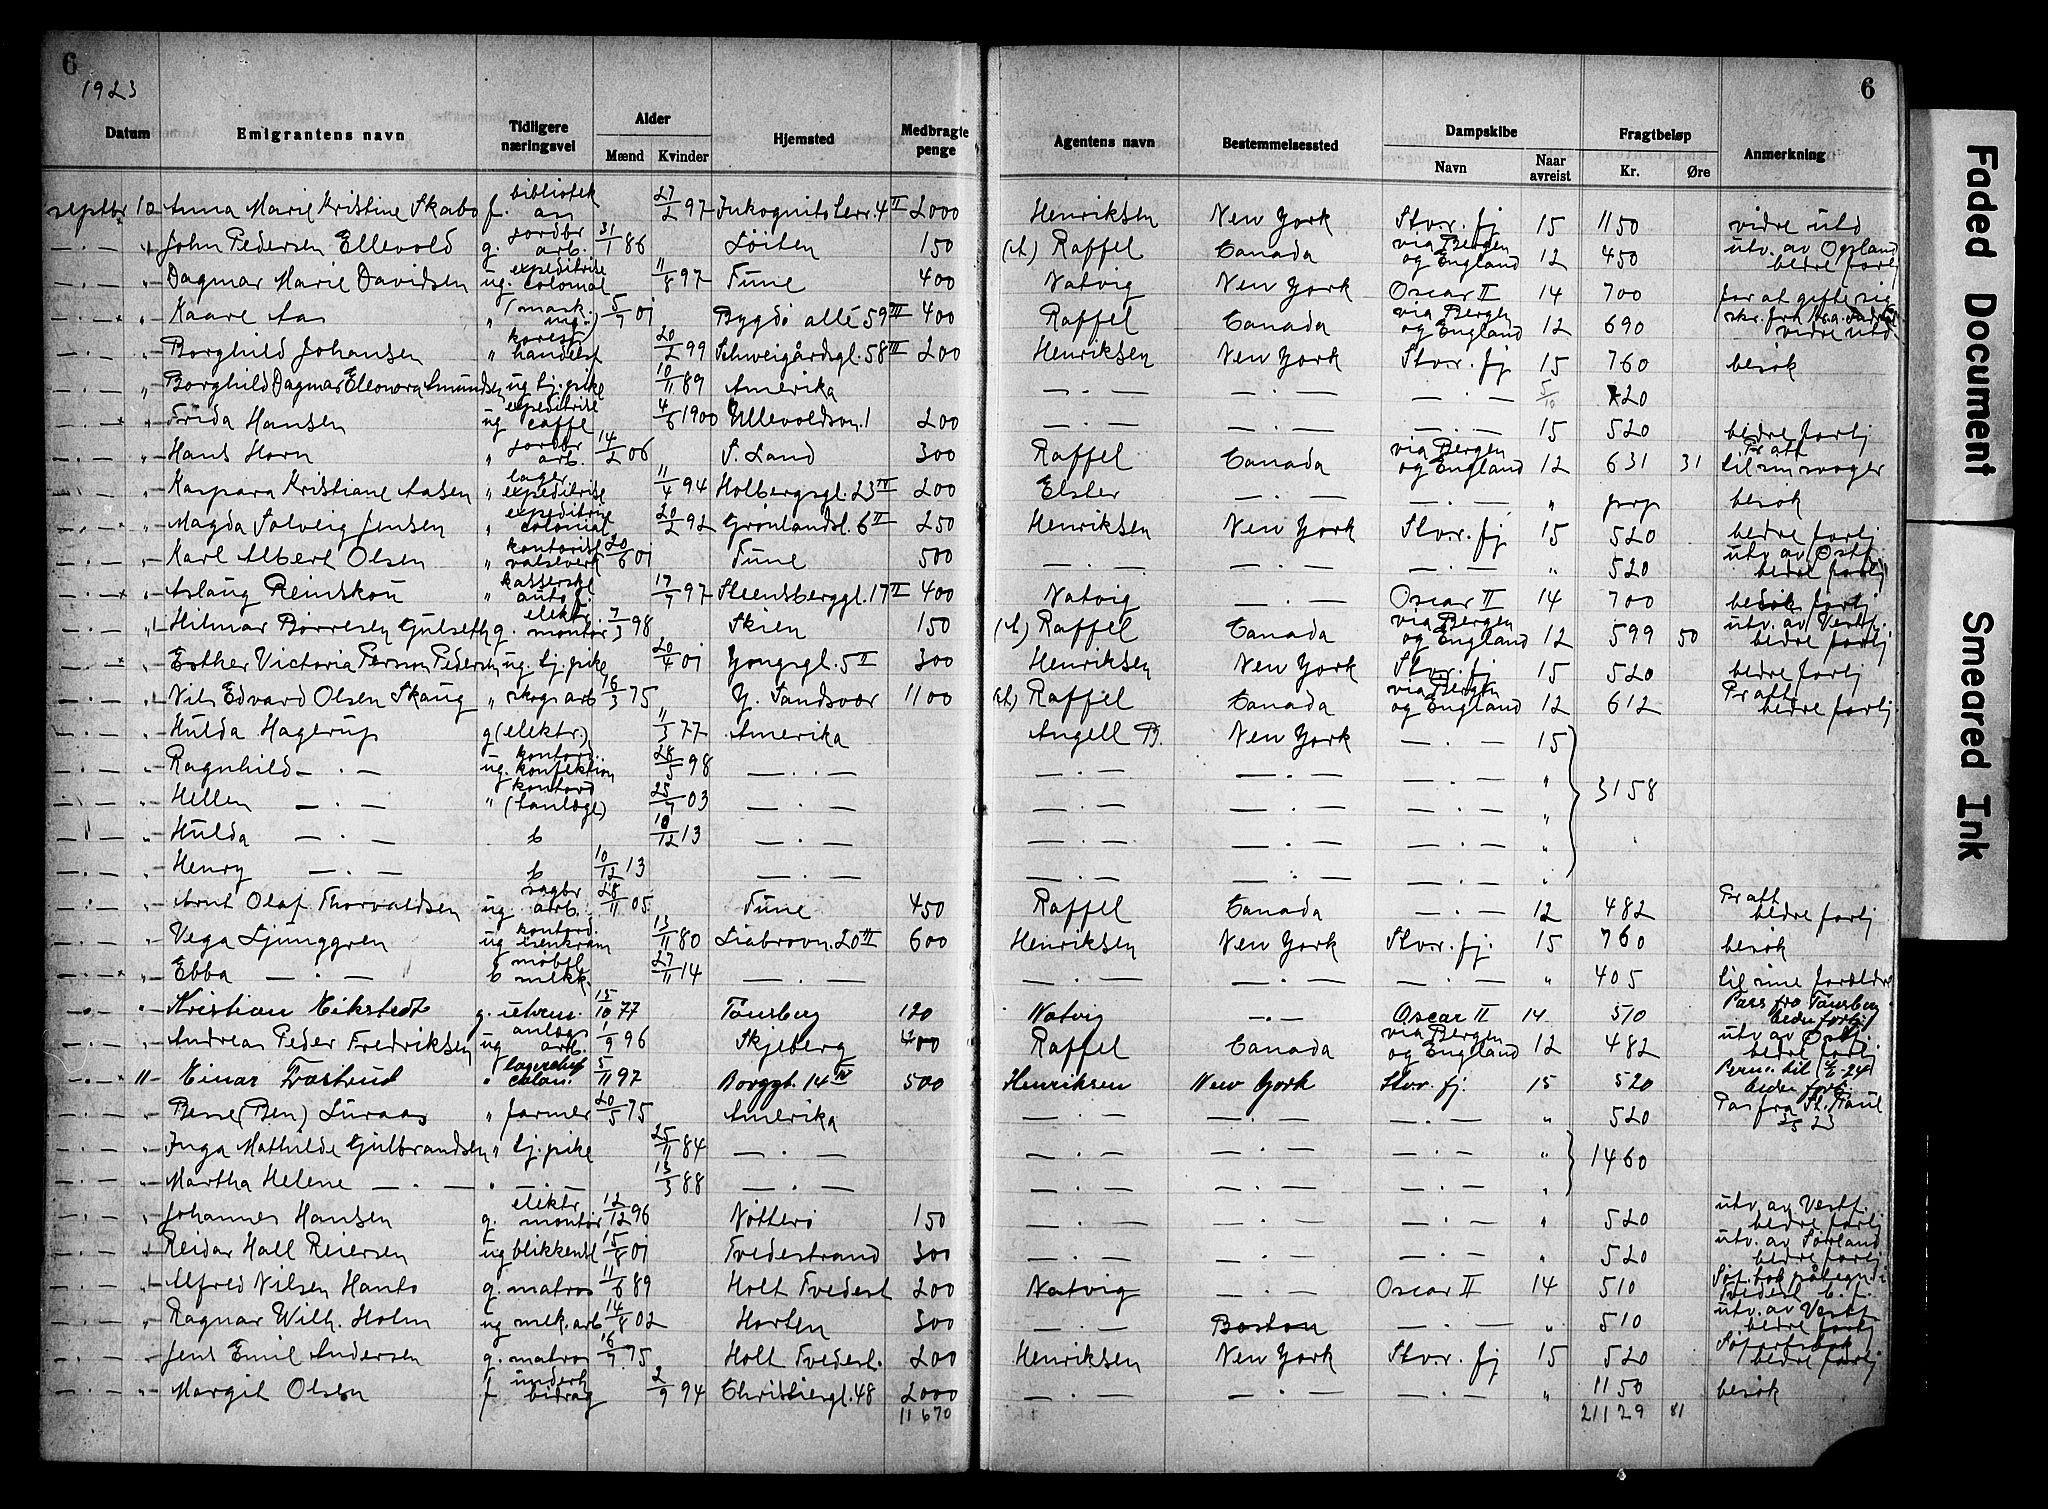 6
1923
6
Datum Emigrantens navn Tidligere næringsvei Alder Mænd Kvinder Hjemsted Medbragte penge Agentens navn Bestemmelsessted Dampskibe Navn Naar avreist Fragtbeløp Kr. Øre Anmerkning
septbr 10 Anna Marie Kristine Skabo f. bibliotek 27/2 97 Inkognito terr. 4 II 2000 Henriksen New York Stvr. fj 15 1150 vidre utd
" John Pedersen Ellevold g. jordbr arb. 31/1 86 Löiten 150 Raffel Canada via Bergen og England 12 450 utv. av Opland bedre forlj
" Dagmar Marie Davidsen ug. expeditrise colonial 11/8 97 Tune 400 Natvig New York Oscar II 14 700 for at gifte sig
" Kaare Aas " 01 Bygdö allé 59 III 400 Raffel Canada via Bergen og England 12 690 vidre utd.
" Borghild Johansen " 20/2 99 Schweigårdsgt. 58 III 200 Henriksen New York Stvr. fj 15 760 besök
" Borghild Dagmar Eleonora Amundsen ug tj. pike 10/11 89 Amerika — . — — . — — . — 5/10 720
" Frida Hansen ug expeditrise caffe 4/6 1900 Ullevoldsv. 1 200 — . — — . — — . — 15 520 bedre forlj
" Hans Horn " jordbr arb. 14/2 06 S. Land 300 Raffel Canada via Bergen og England 12 631 31 Fr att til sin svoger
" Kaspara Kristiane Aasen " lager expeditrise 11/4 94 Holbergsgt. 23 IV 200 Elster — . — — . — " prp besök
" Magda Solveig Jensen " expeditrise colonial 20/2 92 Grönlandsl. 6 II 250 Henriksen New York Stvr. fj 15 520 bedre forlj
" Karl Albert Olsen " kontorist valseverk 20/6 01 Tune 500 — . — — . — — . — " 520 utv av Östf. bedre forlj
" Aslaug Reinskou " kasserske auto f. 97 Steensberggt. 17 II 400 Natvig — . — Oscar II 14 700 forlj
" Hilmar Börresen Gulseth g. elektr. montör 7/3 98 Skien 150 Raffel Canada via Bergen og England 12 599 50 utv. av Vestf. bedre forlj
" Esther Victoria Person Pedersen ug. tj. pike 20/4 01 Yongsgt. 5 II 300 Henriksen New York Stvr. fj 15 520 bedre forlj
" Nils Edvard Olsen Skaug " skogs arb 75 Y. Sandsvær 1100 Raffel Canada via Bergen og England 12 612 Fr att bedre forlj
" Hulda Hagerup g (elektr.) 11/3 77 Amerika Angell B. New York — . — 15
" Ragnhild — . — ug. kontord. konfektion 28/5 98 — . — — . — — . — — . — "
" Hellen — . — " kontord (tanlæge) 03 — . — — . — — . — — . — " 3158
" Hulda — . — b 10/12 13 — . — — . — — . — — . — "
" Henry — . — b 10/12 13 — . — — . — — . — — . — "
" Arnt Olaf Thorvaldsen ug sagbr arb. 28/11 05 Tune 450 Raffel Canada — . — 12 482 Fr att bedre forlj
" Vega Ljunggren ug kontord. isenkram 13/11 80 Liabrovn. 20 III 600 Henriksen New York Stvr. fj. 15 760 besök
" Ebba — . — b 27/11 14 — . — — . — — . — — . — " 405 til sine foreldre
" Kristian Mikstedt g. 77 Tönsberg 120 Natvig — . — Oscar II 14 510 Pass fra Tönsberg bedre forlj
" Andreas Peder Fredriksen ug anlægs arb. 1/9 96 Skjeberg 400 Raffel Canada via Bergen og England 12 482 utv av Östf. bedre forlj
11 Einar Trostrud " 5/11 97 Borggt. 14 IV 500 Henriksen New York Stvr. fj. 15 520 bedre forlj.
" Besse (Ben) Luraas " farmer 20/5 75 Amerika — . — — . — — . — " 520 Pas fra St. Paul 23
" Inga Mathilde Gulbrandsen " tj. pike 25/11 84 — . — — . — — . — — . — " 1460
" Martha Helene — . — " — . — 13/3 88 — . — — . — — . — — . — "
" Johannes Hansen g. elektr. montör 12/12 96 Nötterö 150 — . — — . — — . — " 520 utv. av Vestf. bedre forlj
" Reidar Hall Reiersen ug blikkensl 15/8 01 Tvedestrand 300 — . — — . — — . — " 520 utv. av Sörland bedre forlj
" Alfred Nilsen Hanto g. matros 11/6 89 Holt Tvedest 200 Natvig — . — Oscar II 14 510
" Ragnar Wilh. Holm ug mek. arb 14/8 02 Horten 300 — . — Boston — . — " 510 utv. av Vestf. bedre forlj
" Jens Emil Andersen g. matros 75 Holt Tvedest. 200 Henriksen New York Stvr. fj 15 520 bedre forlj
" Margit Olsen f underh bidrag 2/9 94 Christiesgt. 48 2000 — . — — . — — . — " 1150 besök
11670 21129 81
Faded Document
Smeared Ink